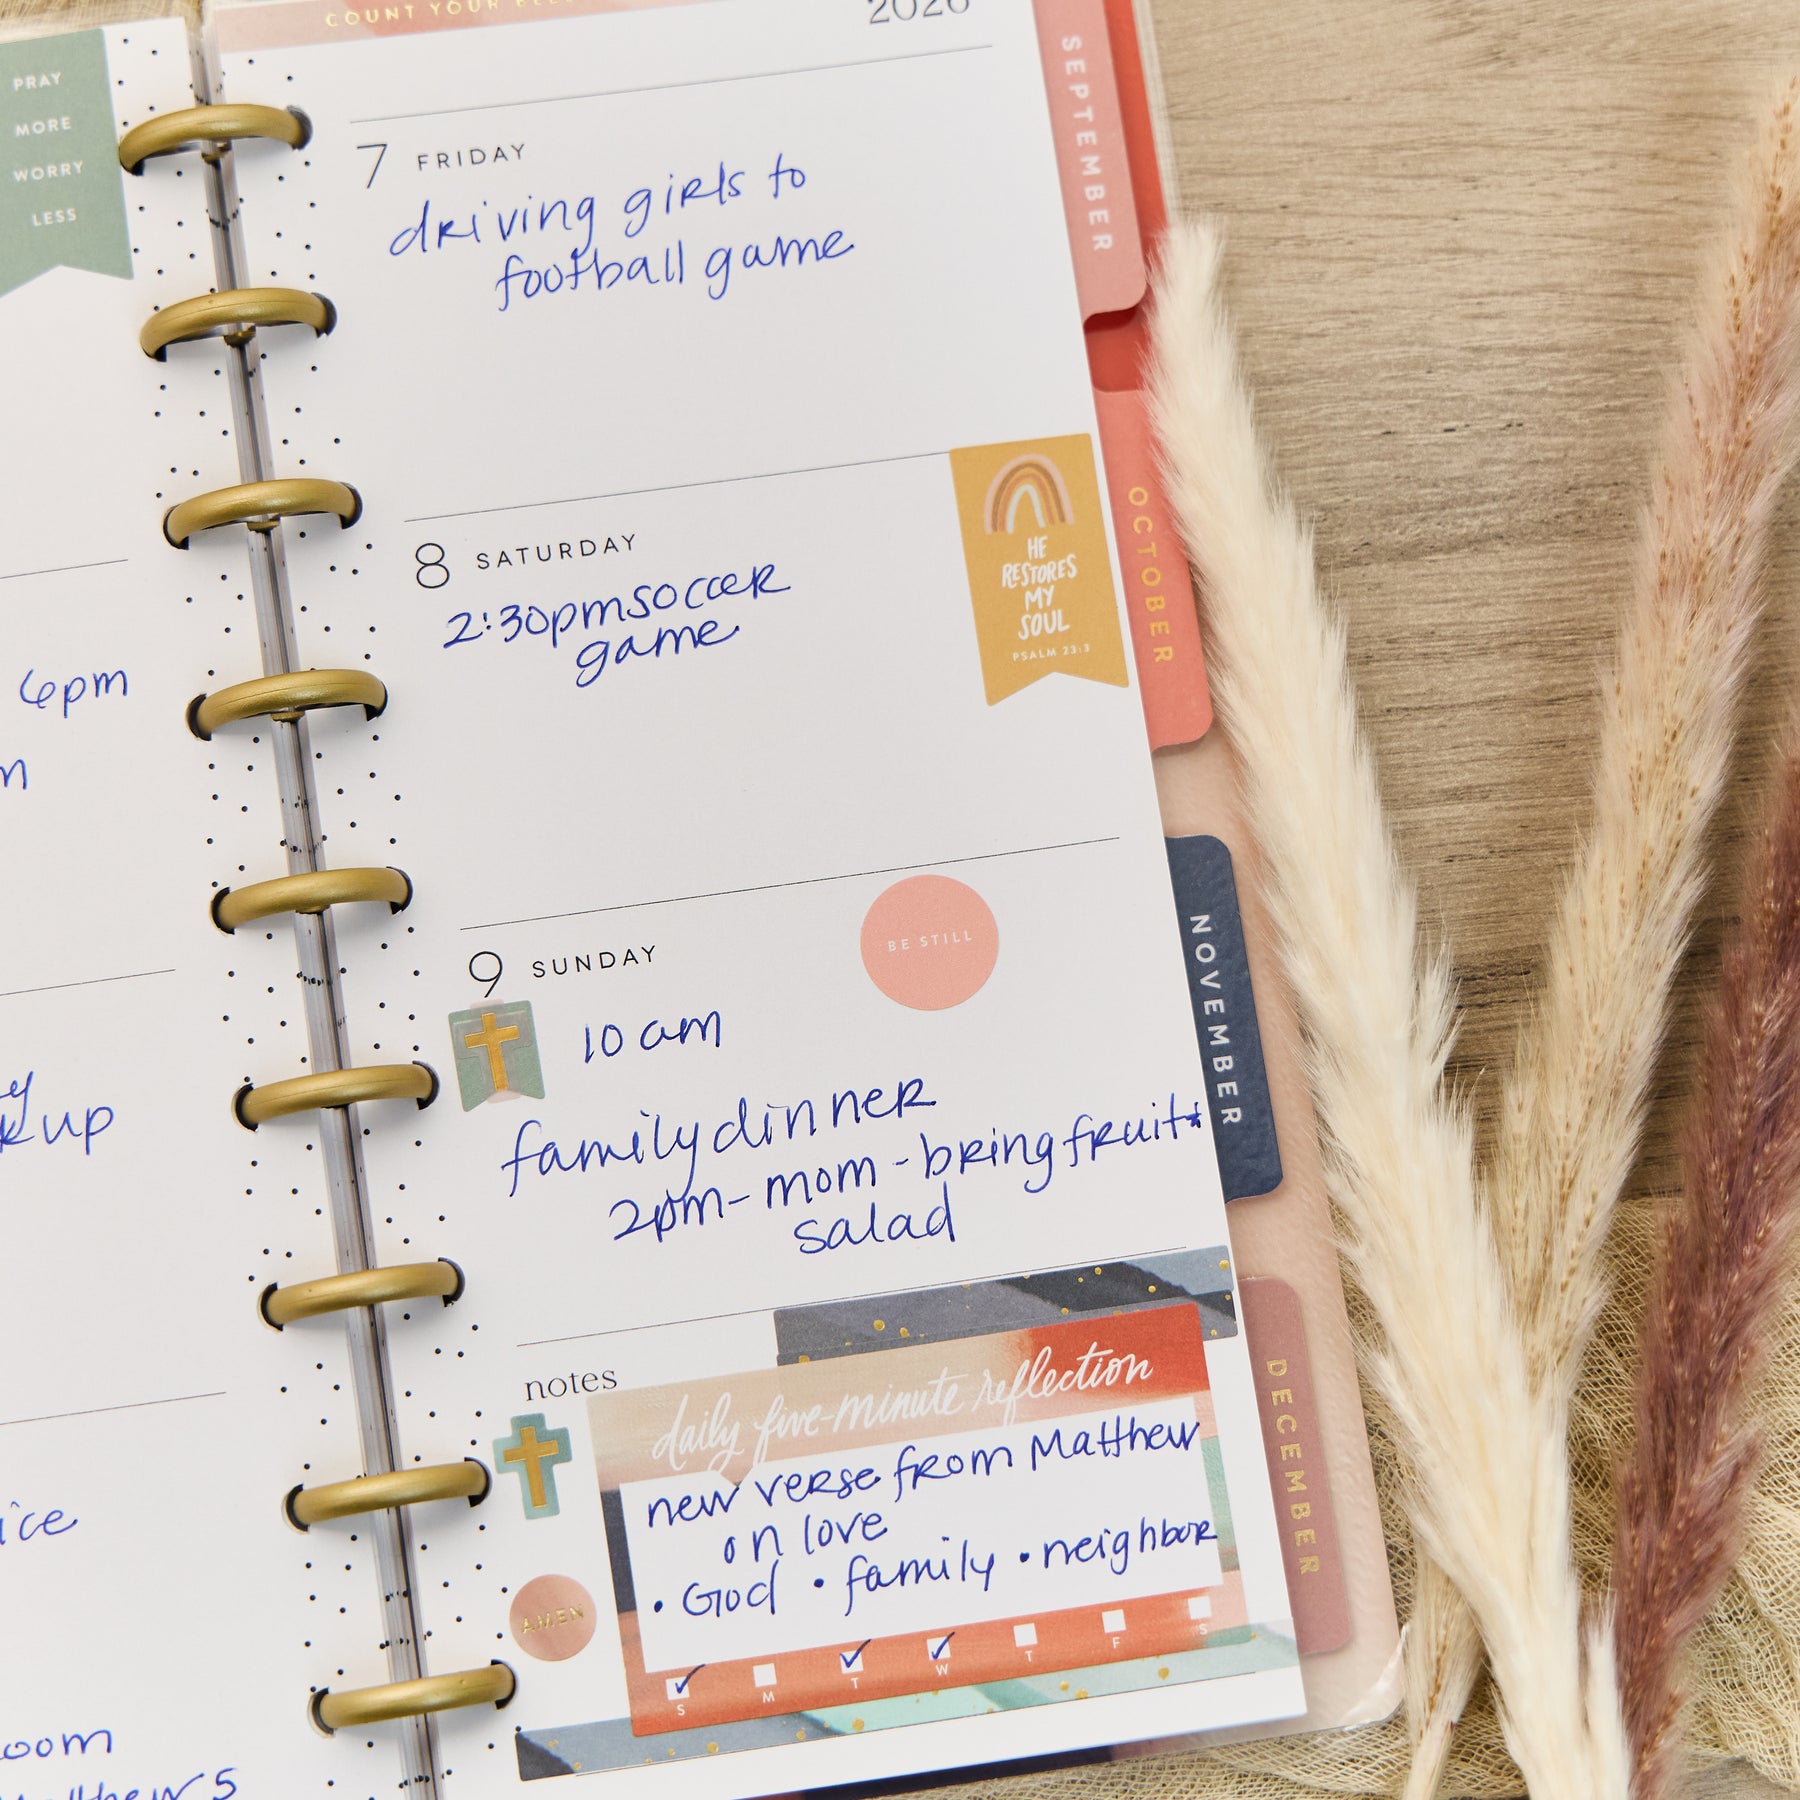 PRAY
MORE
WORRY
LESS
6pm
up
COUNT YOUR
2026
7 FRIDAY
driving girls to
football game
8 SATURDAY
2:30pm soccer
game
HE
RESTORES
MY
SOUL
PSALM 23:3
9 SUNDAY
BE STILL
10 am
family dinner
2pm - mom - bring fruit
salad
notes
daily five-minute reflection
new verse from Matthew
on love
• God • family • neighbor
S M T W T F S
AMEN
SEPTEMBER
OCTOBER
NOVEMBER
DECEMBER